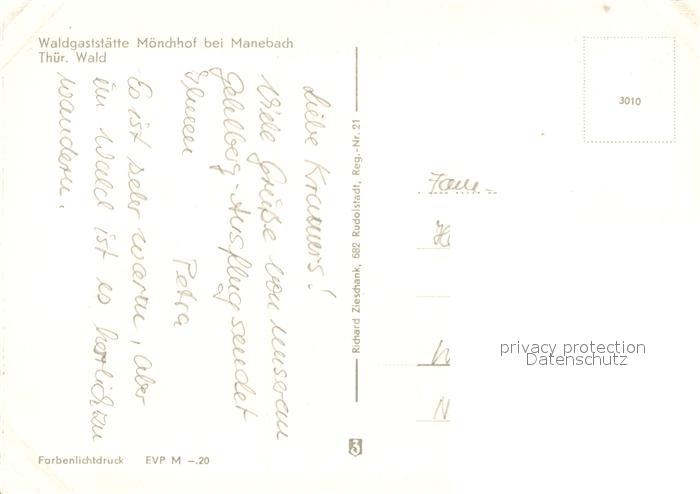 Waldgaststätte Mönchhof bei Manebach
Thür. Wald
Liebe Kramers!
Viele Grüße von unserem
Gehlberg-Ausflug sendet
Ihnen Petra
Es ist sehr warm, aber
im Wald ist es herrlich zu
wandern.
Richard Zieschank, 682 Rudolstadt, Reg.-Nr. 21
3010
Fam.
privacy protection
Datenschutz
Farbenlichtdruck EVP M –.20
3